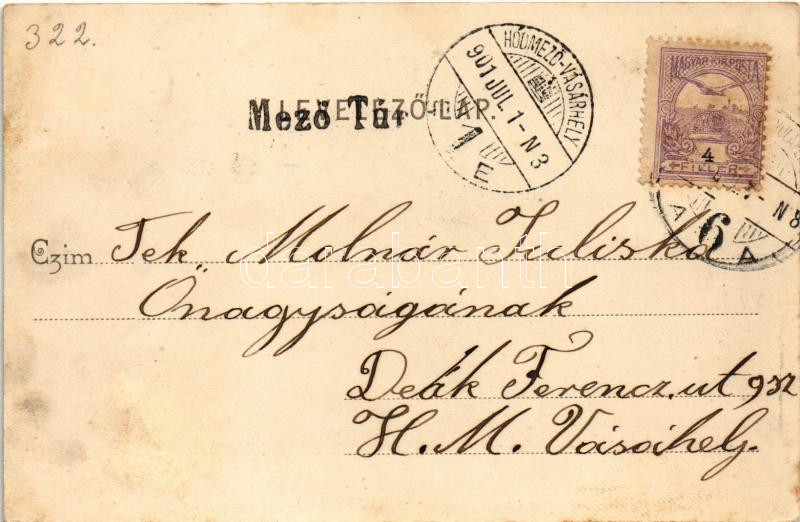 322.
LEVELEZŐ-LAP.
Mező Túr
HÓDMEZŐ-VÁSÁRHELY
901 JUL. 1-N 3
1 E
MAGYAR KIR. POSTA
4
FILLÉR
N 8
6
A A
Czim Tek. Molnár Juliska
Őnagyságának
Deák Ferencz. ut 9sz
H. M. Vásáhely.
darabanth